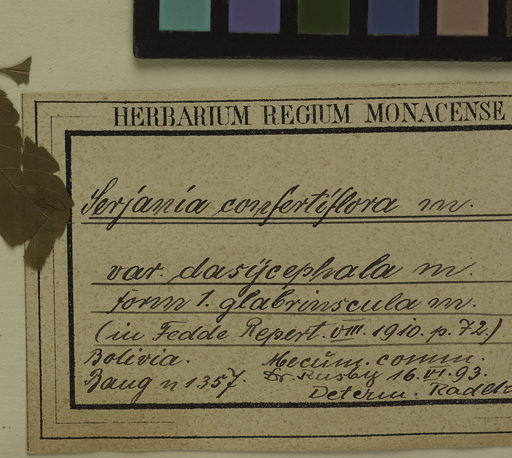 HERBARIUM REGIUM MONACENSE
Serjania confertiflora m.
var. dasycephala m.
form 1. glabriuscula m.
(in Fedde Repert. VIII. 1910. p. 72.)
Bolivia. Mecum. comm.
Bang n 1357. Dr Rusby 16. VI. 93.
Determ. Radlk